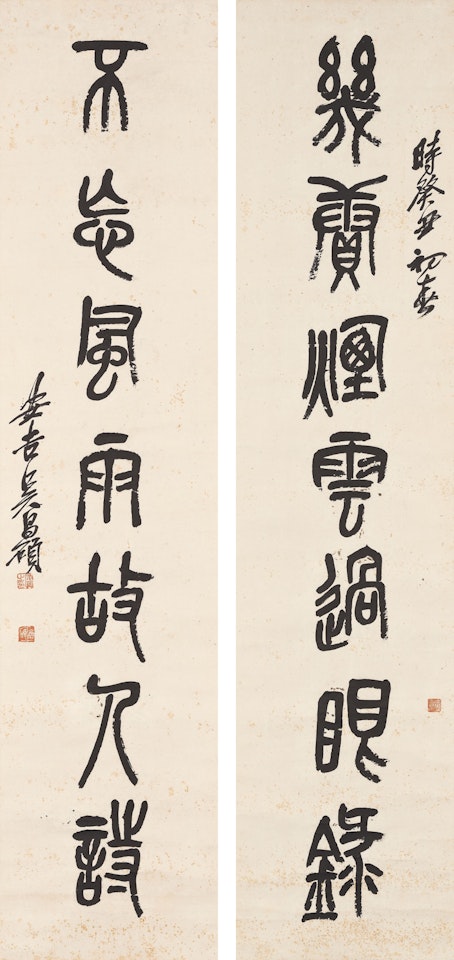 時癸丑初春
幾賡煙雲過眼錄
不忘風雨故人詩
安吉吳昌碩